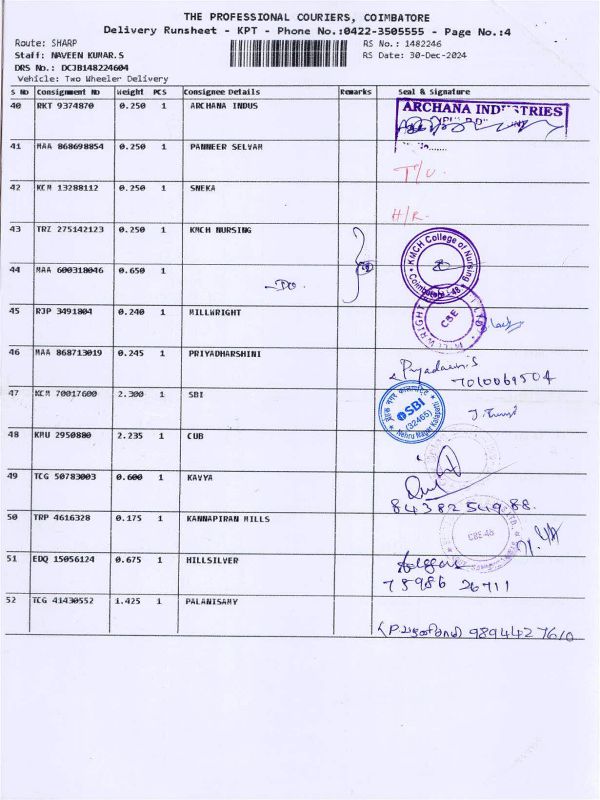 THE PROFESSIONAL COURIERS, COIMBATORE
Delivery Runsheet - KPT - Phone No.:0422-3505555 - Page No.:4
Route: SHARP
RS No.: 1482246
Staff: NAVEEN KUMAR.S
RS Date: 30-Dec-2024
DRS No.: DCJB148224604
Vehicle: Two Wheeler Delivery
S No Consignment No Weight PCS Consignee Details Remarks Seal & Signature
40 RKT 9374870 0.250 1 ARCHANA INDUS ARCHANA INDUSTRIES
41 MAA 868698854 0.250 1 PANNEER SELVAM T/U.
42 KCM 13288112 0.250 1 SNEKA H/R.
43 TRZ 275142123 0.250 1 KMCH NURSING KMCH College of Nursing Coimbatore-48
44 MAA 600318046 0.650 1 -Do.
45 RJP 3491804 0.240 1 MILLWRIGHT CBE
46 MAA 868713019 0.245 1 PRIYADHARSHINI 7010069504
47 KCM 70017600 2.300 1 SBI SBI (32465) Nehru Nagar
48 KMU 2950880 2.235 1 CUB
49 TCG 50783003 0.600 1 KAVYA 84382 54988.
50 TRP 4616328 0.175 1 KANNAPIRAN MILLS CBE-48
51 EDQ 15056124 0.675 1 MILLSILVER 75986 26711
52 TCG 41430552 1.425 1 PALANISAMY 9894427610